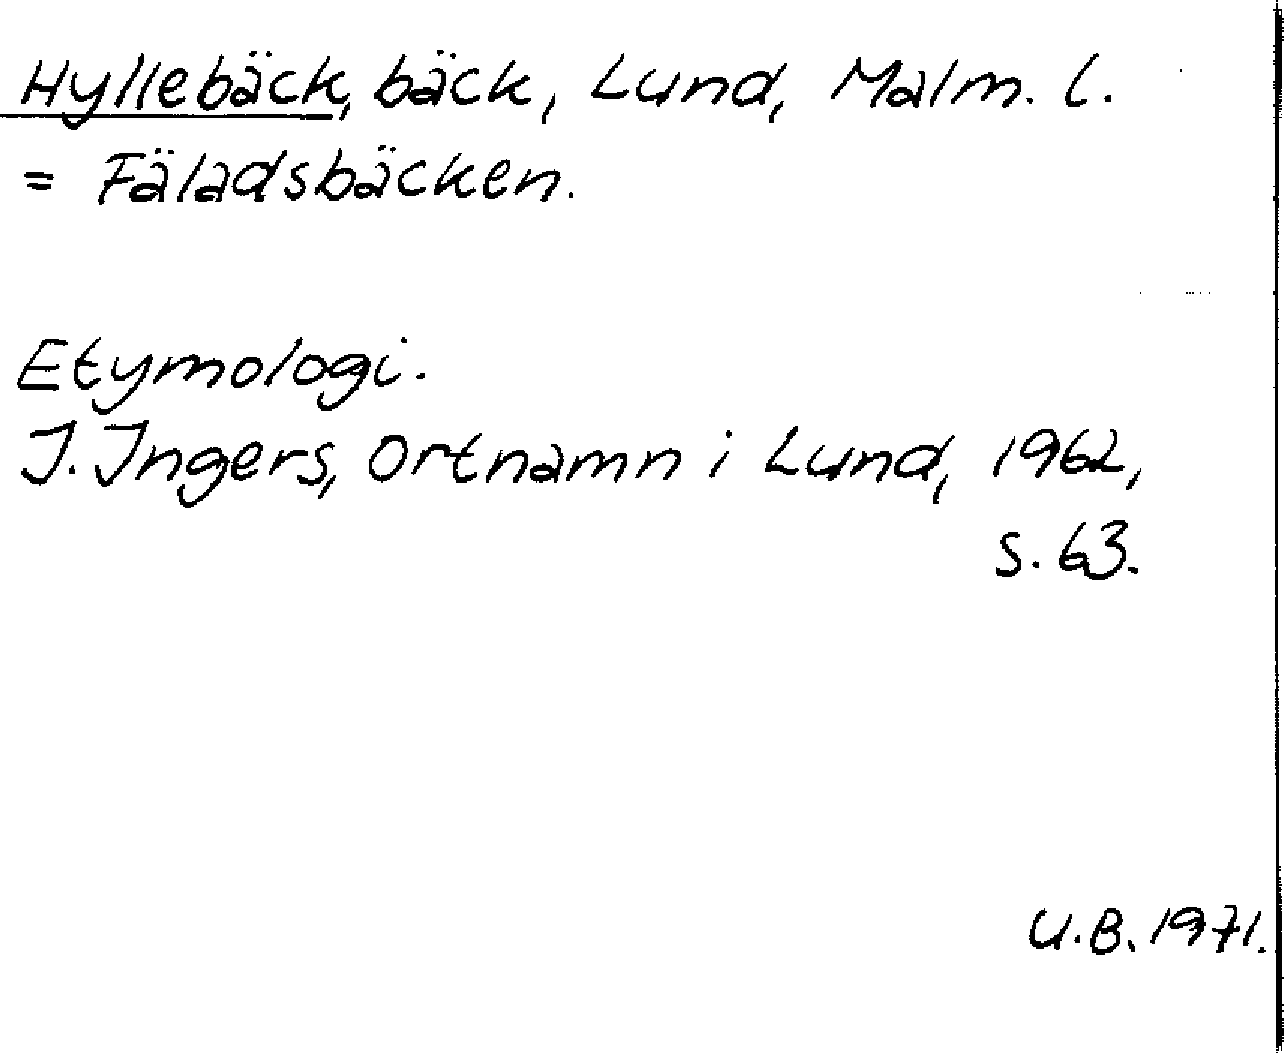 Hyllebäck, bäck, Lund, Malm. l.
= Fäladsbäcken.
Etymologi.
I. Ingers, Ortnamn i Lund, 1962,
s. 63.
U.B. 1971.